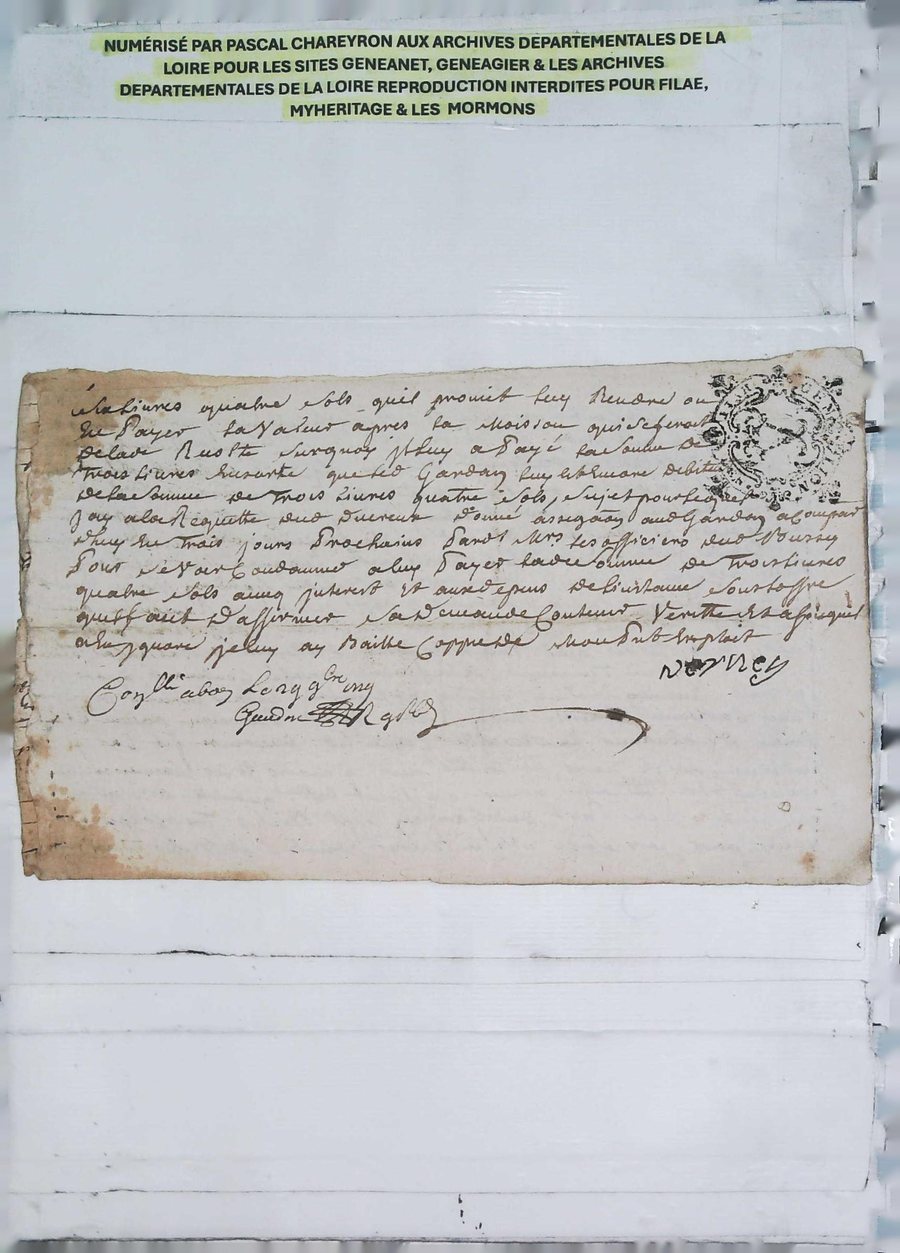 NUMÉRISÉ PAR PASCAL CHAREYRON AUX ARCHIVES DEPARTEMENTALES DE LA
LOIRE POUR LES SITES GENEANET, GENEAGIER & LES ARCHIVES
DEPARTEMENTALES DE LA LOIRE REPRODUCTION INTERDITES POUR FILAE,
MYHERITAGE & LES MORMONS
Livres quatre sols quil promit luy Rendre ou
luy Payer la Valeur apres la Moisson qui se feroit
surquoy il luy a Payé la somme de
Trois Livres Ensorte que led Gardon luy est Encore debiteur
de la somme de Trois Livres quatre sols, sujet pourlequel
Jay a la Requette dud donné assigaõn aud Gardon a Compar
dhuy En Trois jours Prochains Pard Mrs les officiers dud Bussy
Pour se Voir Condamné a luy Payer ladte somme de Trois Livres
quatre sols avecq jnterest Et aux depens de linstance sous loffre
quil fait Daffirmer sa Demande Contenir Veritté Et affin quil
nen jgnore je luy ay Baillé Coppie de Mon Pnt Exploit
verney